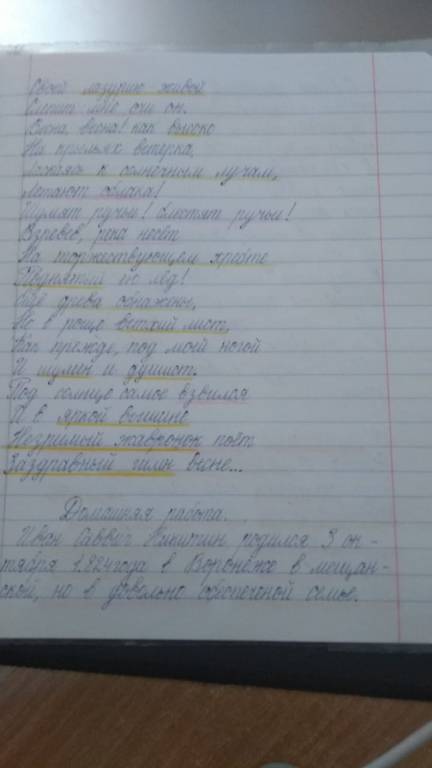 Своей лазурию живой
Слепит мне очи он.
Весна, весна! как высоко
На крыльях ветерка,
Ласкаясь к солнечным лучам,
Летают облака!
Шумят ручьи! блестят ручьи!
Взревев, река несёт
На торжествующем хребте
Поднятый ею лёд!
Ещё древа обнажены,
Но в роще ветхий лист,
Как прежде, под моей ногой
И шумен и душист.
Под солнце самое взвился
И в яркой вышине
Незримый жавронок поёт
Заздравный гимн весне...
Домашняя работа.
Иван Саввич Никитин родился 3 ок-
тября 1824 года в Воронеже в мещан-
ской, но в довольно обеспеченой семье.